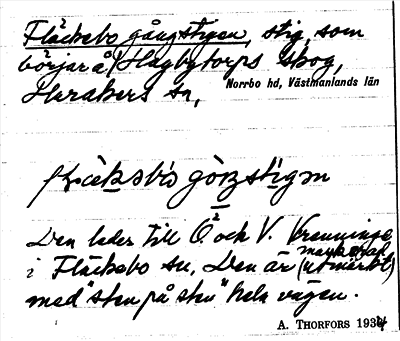 Fläckebo gångstigen, stig, som
börjar å Hagbytorps skog,
Harakers sn,
Norrbo hd, Västmanlands län
Den leder till Ö. och V. Vrenninge
i Fläckebo sn. Den är markerad (utmärkt)
med "sten på sten" hela vägen.
A. THORFORS 1934